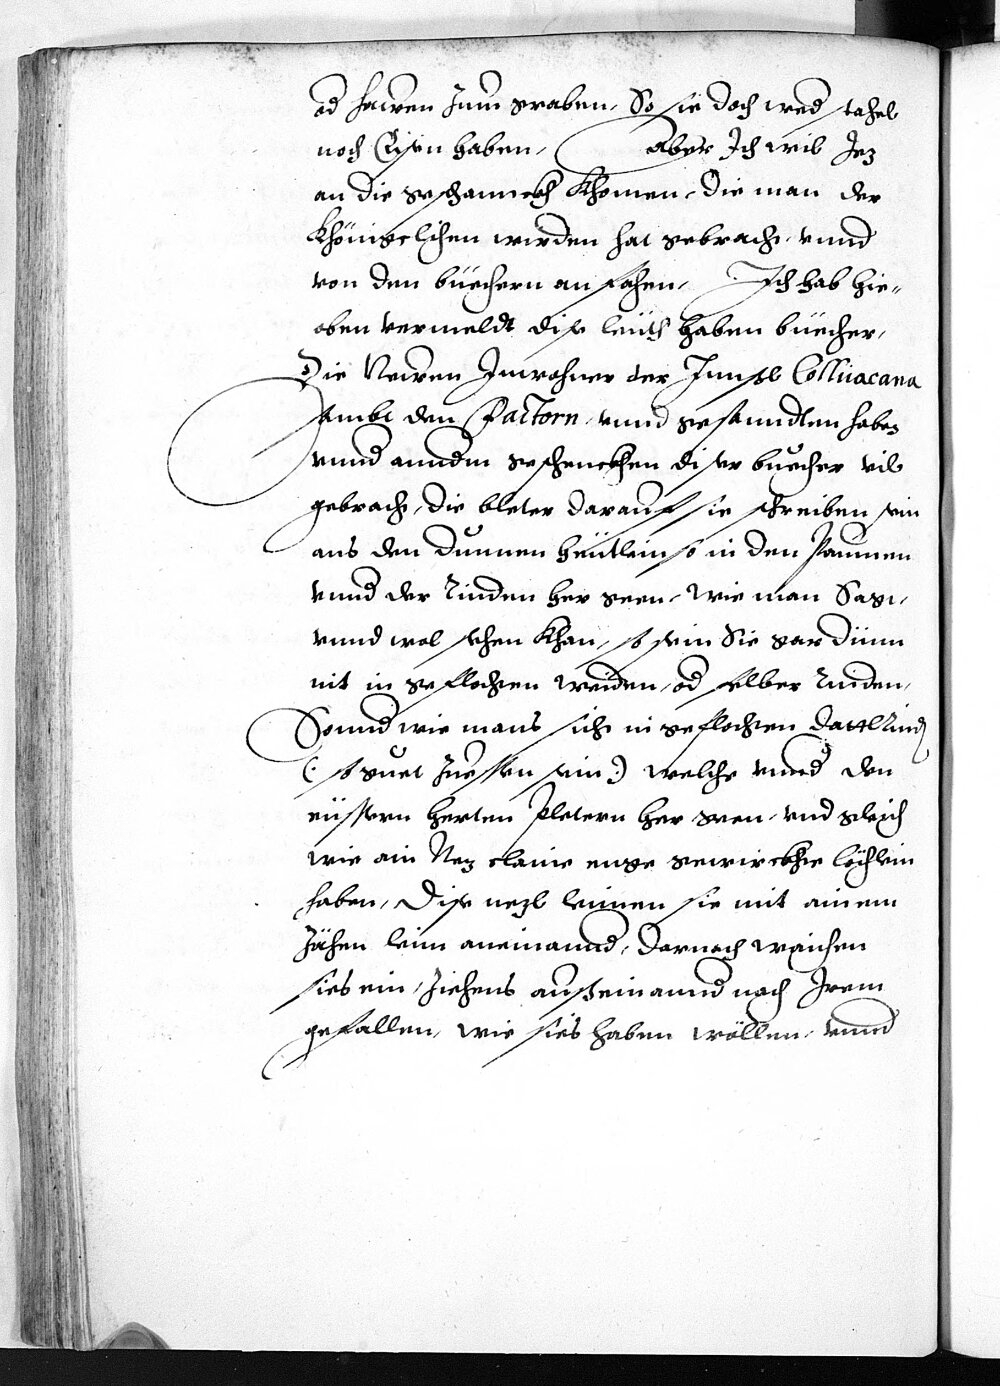 od hawen zum graben, So sie doch wed stahel
noch Eysen haben, Aber Ich wil Jez
an die geschannckh khomen, Die man der
Khönigelichen wirden hat gebracht, vnnd
von den büechern anfahen, Ich hab hie-
oben vermeldt dise leüth haben büecher,
Die Newen Inwohner der Innsl Colluacana
sambt den Factorn, vnnd gesanndten haben
vnnd anndern geschenckhen diser buecher vil
gebracht, die bleter darauf sie schreiben sein
aus den dunnen heütlein so in den Paumen
vnnd der rinden her geen, wie man Sagt,
vnnd wol sehen khan, so sein Sie gar dünn
nit in geflochten weiden, od felber rinden,
Sonnd wie mans sicht in geflochten Dattl rind
(: so guet zuessen sein :) welche vnnd den
eüssern herten Pletern her geen, vnd gleich
wie ain Nez claine enge gewirckhte löchlein
haben, Dise nezl leimen sie mit ainem
Zähen leim aneinannd, Darnach waichen
sies ein, Ziehens auseinannd nach Irem
gefallen, wie sies haben wöllen, vnnd